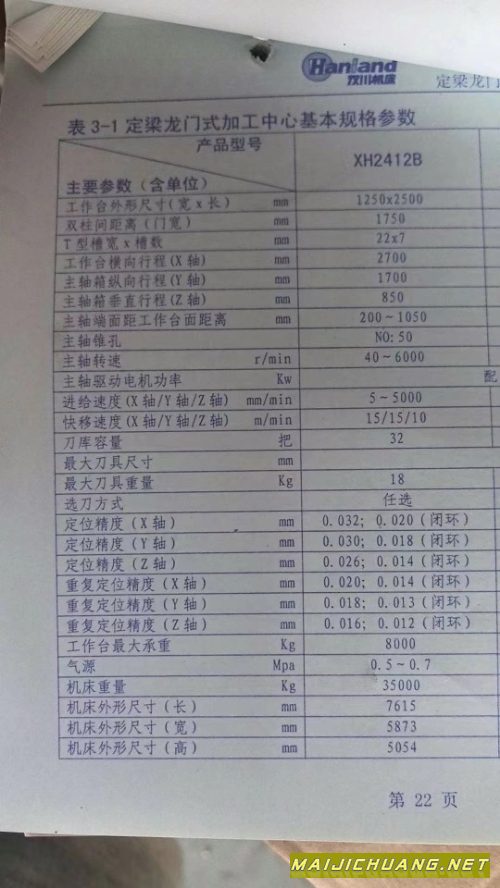 Hanland
汉川机床
定梁龙门
表 3-1 定梁龙门式加工中心基本规格参数
产品型号
主要参数（含单位）
XH2412B
工作台外形尺寸(宽 x 长) mm 1250x2500
双柱间距离（门宽） mm 1750
T 型槽宽 x 槽数 mm 22x7
工作台横向行程(X 轴) mm 2700
主轴箱纵向行程(Y 轴) mm 1700
主轴箱垂直行程(Z 轴) mm 850
主轴端面距工作台面距离 mm 200～1050
主轴锥孔 NO: 50
主轴转速 r/min 40～6000
主轴驱动电机功率 Kw 配
进给速度(X 轴/Y 轴/Z 轴) mm/min 5～5000
快移速度(X 轴/Y 轴/Z 轴) m/min 15/15/10
刀库容量 把 32
最大刀具尺寸 mm
最大刀具重量 Kg 18
选刀方式 任选
定位精度（X 轴） mm 0.032; 0.020（闭环）
定位精度（Y 轴） mm 0.030; 0.018（闭环）
定位精度（Z 轴） mm 0.026; 0.014（闭环）
重复定位精度（X 轴） mm 0.020; 0.014（闭环）
重复定位精度（Y 轴） mm 0.018; 0.013（闭环）
重复定位精度（Z 轴） mm 0.016; 0.012（闭环）
工作台最大承重 Kg 8000
气源 Mpa 0.5～0.7
机床重量 Kg 35000
机床外形尺寸（长） mm 7615
机床外形尺寸（宽） mm 5873
机床外形尺寸（高） mm 5054
第 22 页
MAIJICHUANG.NET